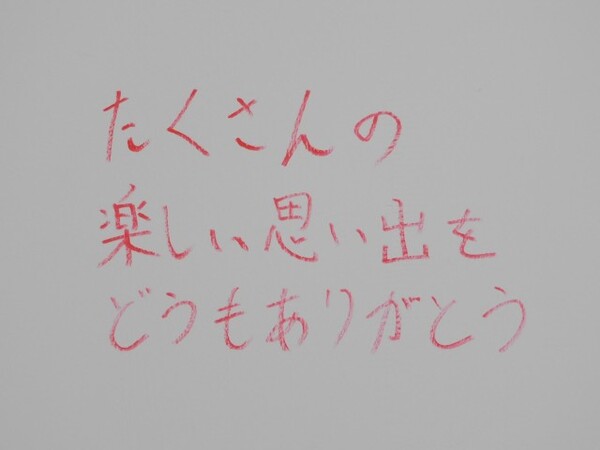 たくさんの
楽しい思い出を
どうもありがとう